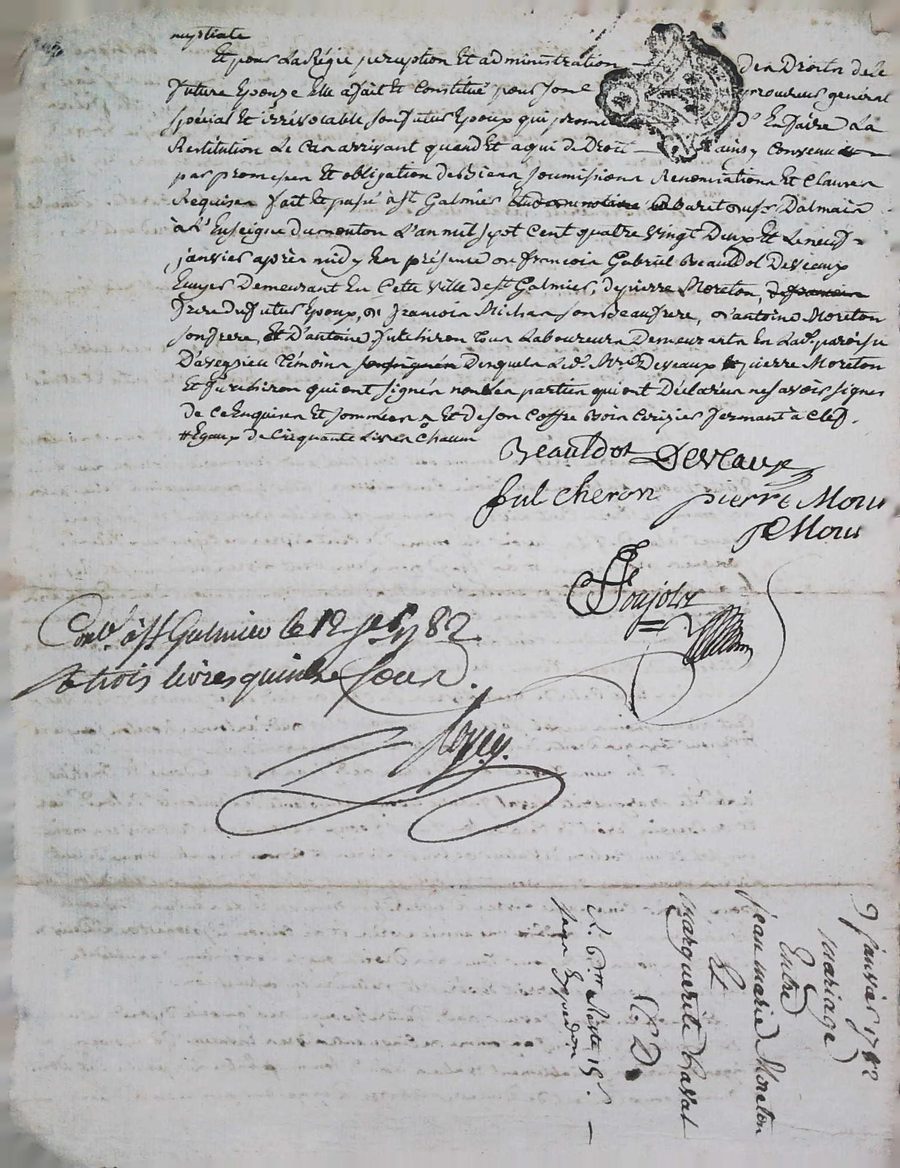 Et pour La Régie perception Et administration des Droits de Le
future Epouze Elle a fait Et Constitué pour son procureur général
spécial Et irrévocable son futur Epoux qui promet d'En faire La
Restitution Le Cas arrivant quand Et a qui de Droit ainsy Convenu
par promesses Et obligation de Biens soumissions Renonciations Et Clauses
Requises fait Et passé à St Galmier Dalmais
à L'Enseigne du mouton L'an mil sept Cent quatre vingt Deux Et Le neuf
janvier après midy En présence de francois Gabriel Beauldot Deveaux
Ecuyer Demeurant En Cette ville de St Galmier, de pierre Moreton,
frere du futur Epoux, de francois Michas son Beaufrere, d'antoine Moreton
son frere, Et D'antoine fulchiron tous Laboureurs Demeurants En La d. paroisse
D'aveizieu Témoins Desquels Le d. Sr Deveaux pierre Moreton
Et fulchiron qui ont signés non Les parties qui ont Déclarées ne savoir signer
de ce Enquises Et sommées Et de son Coffre Bois Cerizier fermant à Clef
Egaux de Cinquante Livres Chacun
Beauldot Deveaux
fulcheron pierre Moru
P Moru
Ponjols
Conlé à St Galmier le 12 jer 1782
trois livres quinze sous
9 janvier 1782
mariage
Entre
jean marie Moreton
Et
Marguerite Chavat
C. D